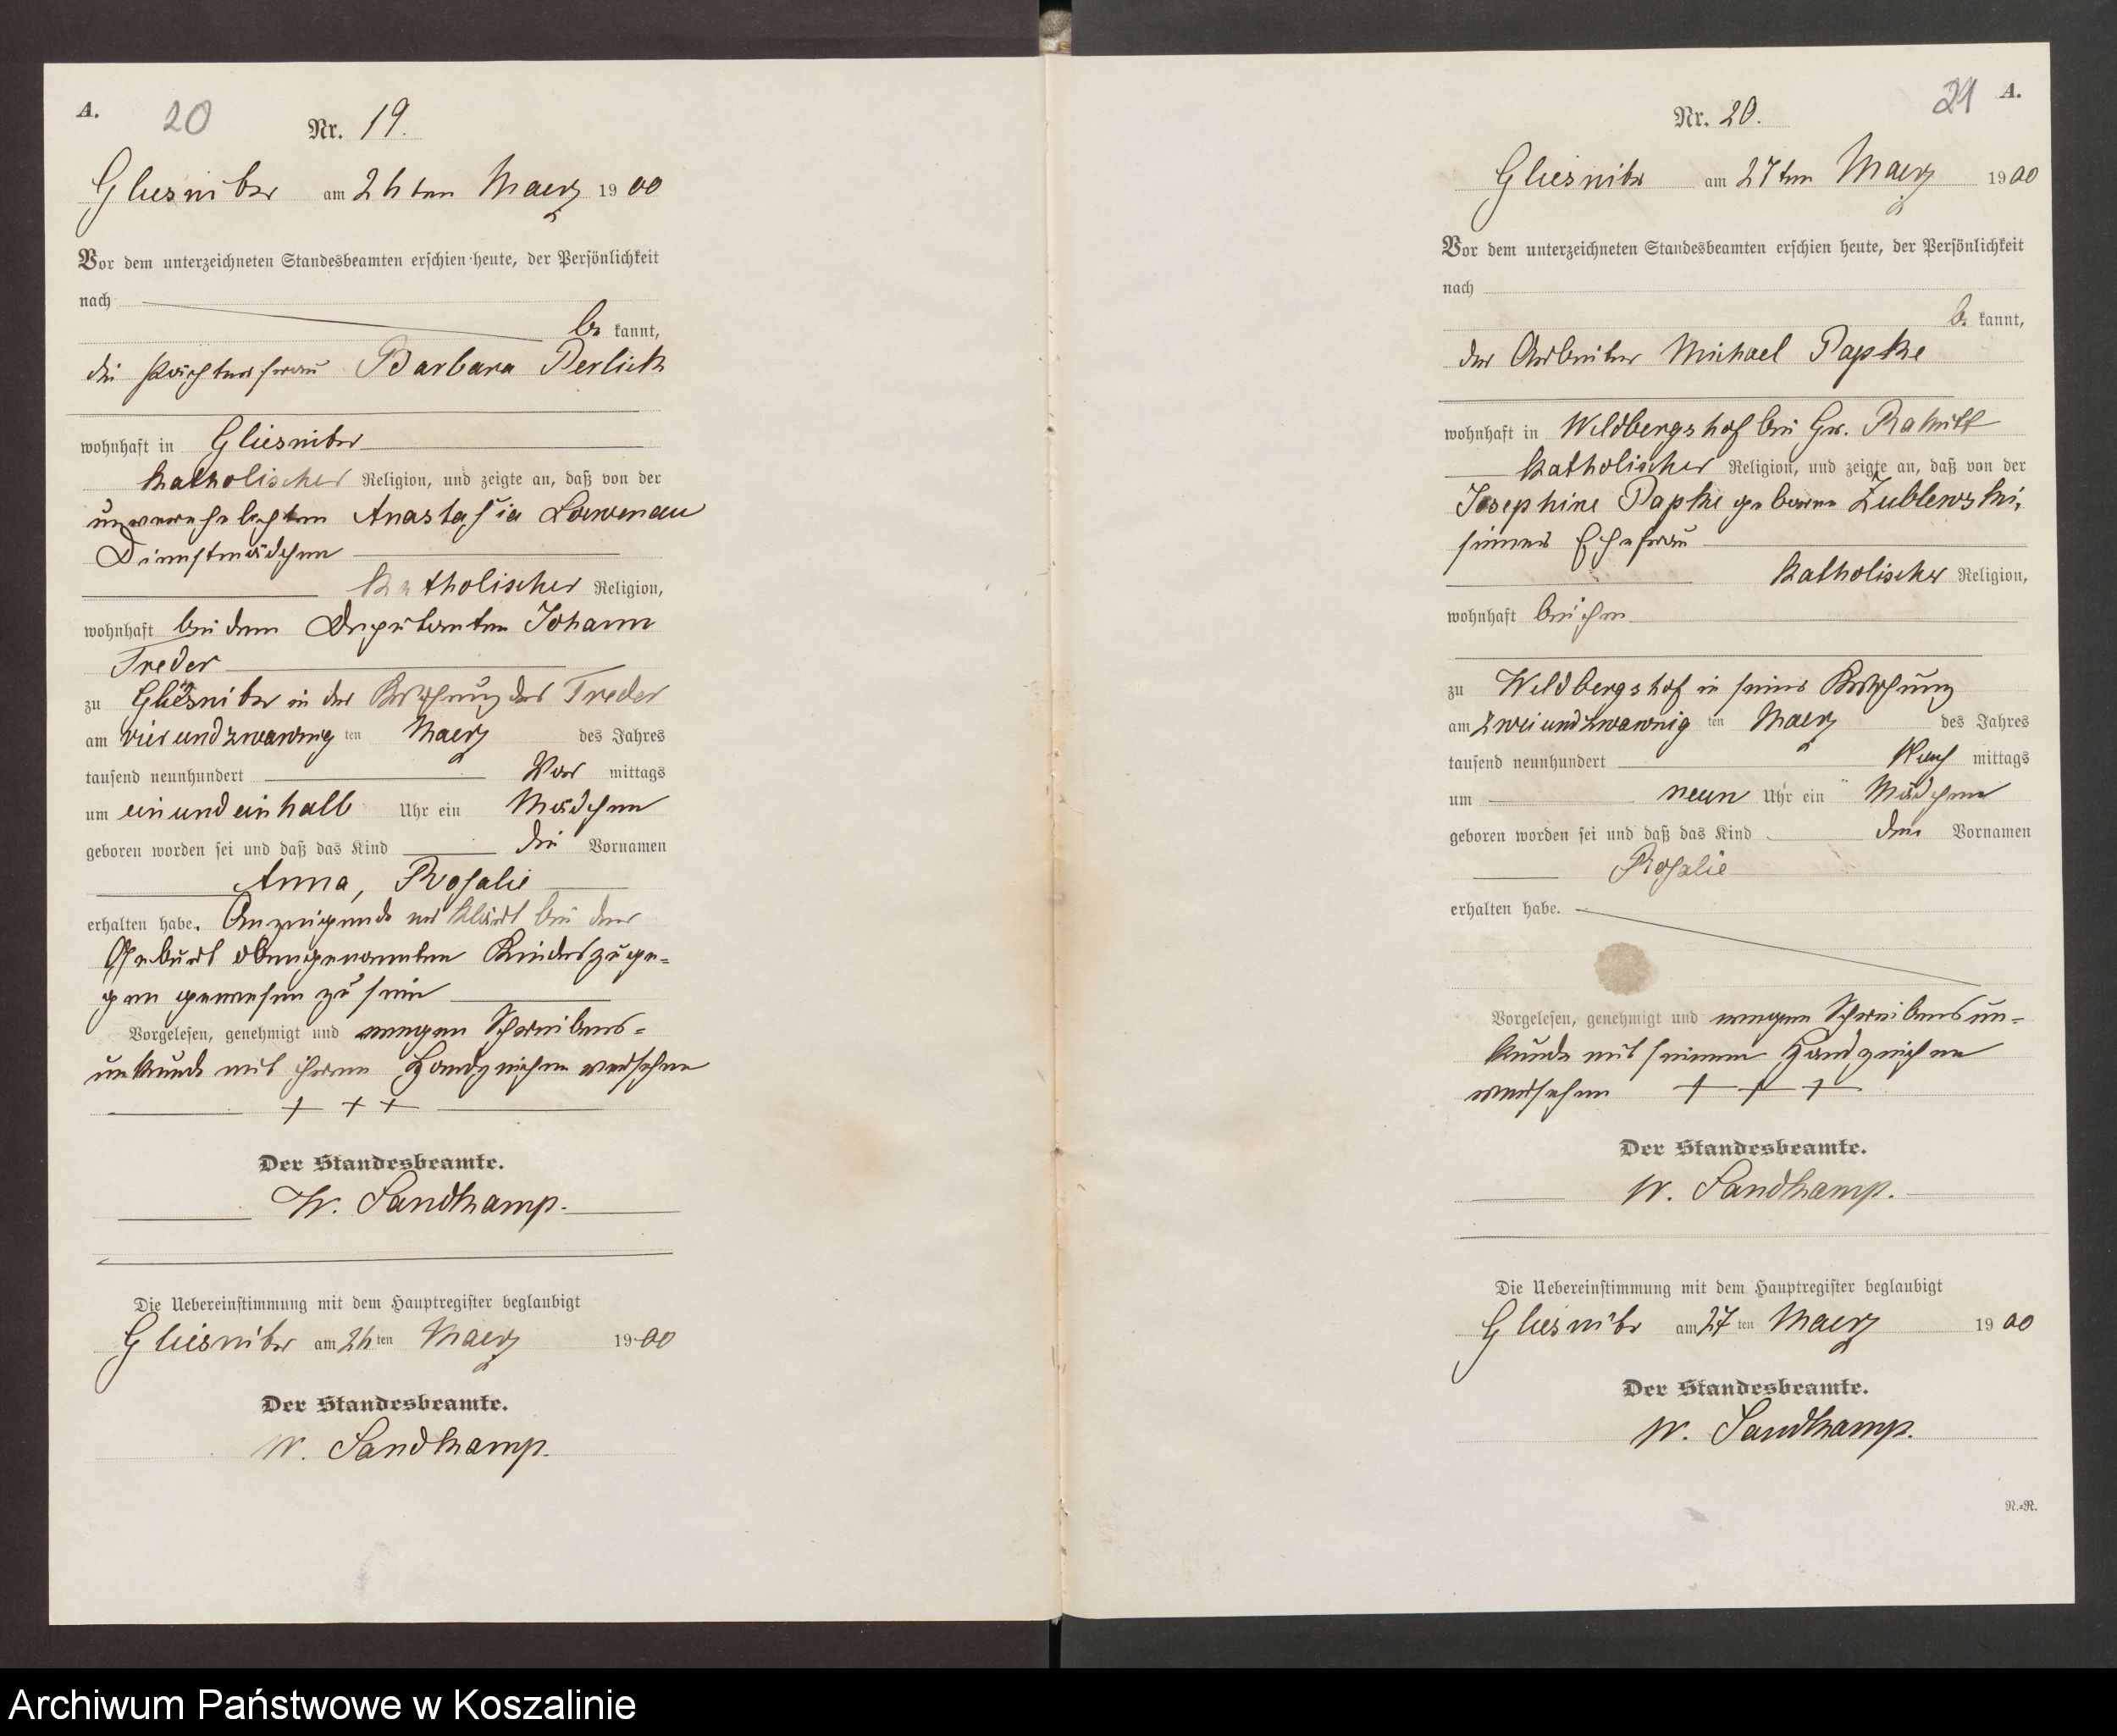 A.
20
Nr. 19.
Gliesnitz am 24ten Maerz 1900
Vor dem unterzeichneten Standesbeamten erschien heute, der Persönlichkeit
nach
be kannt,
die Pächterfrau Barbara Perlick
wohnhaft in Gliesnitz
katholischer Religion, und zeigte an, daß von der
unverehelichten Anastasia Loewenau
Dienstmädchen
katholischer Religion,
wohnhaft bei dem Deputanten Johann
Treder
zu Gliesnitz in der Wohnung des Treder
am vier und zwanzig ten Maerz des Jahres
tausend neunhundert Vor mittags
um ein und ein halb Uhr ein Mädchen
geboren worden sei und daß das Kind die Vornamen
Anna, Rosalie
erhalten habe. Anzeigende erklärt bei der
Geburt obengenannten Kindes zuge=
gen gewesen zu sein
Vorgelesen, genehmigt und wegen Schreibens=
unkunde mit ihrem Handzeichen versehen
+ + +
Der Standesbeamte.
W. Sandkamp.
Die Uebereinstimmung mit dem Hauptregister beglaubigt
Gliesnitz am 24 ten Maerz 1900
Der Standesbeamte.
W. Sandkamp.
21 A.
Nr. 20.
Gliesnitz am 27ten Maerz 1900
Vor dem unterzeichneten Standesbeamten erschien heute, der Persönlichkeit
nach
be kannt,
der Arbeiter Michael Papke
wohnhaft in Wildbergshof bei Gr. Rakitt
katholischer Religion, und zeigte an, daß von der
Josephine Papke geborene Zublewski,
seiner Ehefrau
katholischer Religion,
wohnhaft bei ihm
zu Wildbergshof in seiner Wohnung
am zwei und zwanzig ten Maerz des Jahres
tausend neunhundert Nach mittags
um neun Uhr ein Mädchen
geboren worden sei und daß das Kind den Vornamen
Rosalie
erhalten habe.
Vorgelesen, genehmigt und wegen Schreibensun=
kunde mit seinem Handzeichen
versehen + + +
Der Standesbeamte.
W. Sandkamp.
Die Uebereinstimmung mit dem Hauptregister beglaubigt
Gliesnitz am 27 ten Maerz 1900
Der Standesbeamte.
W. Sandkamp.
N.=R.
Archiwum Państwowe w Koszalinie